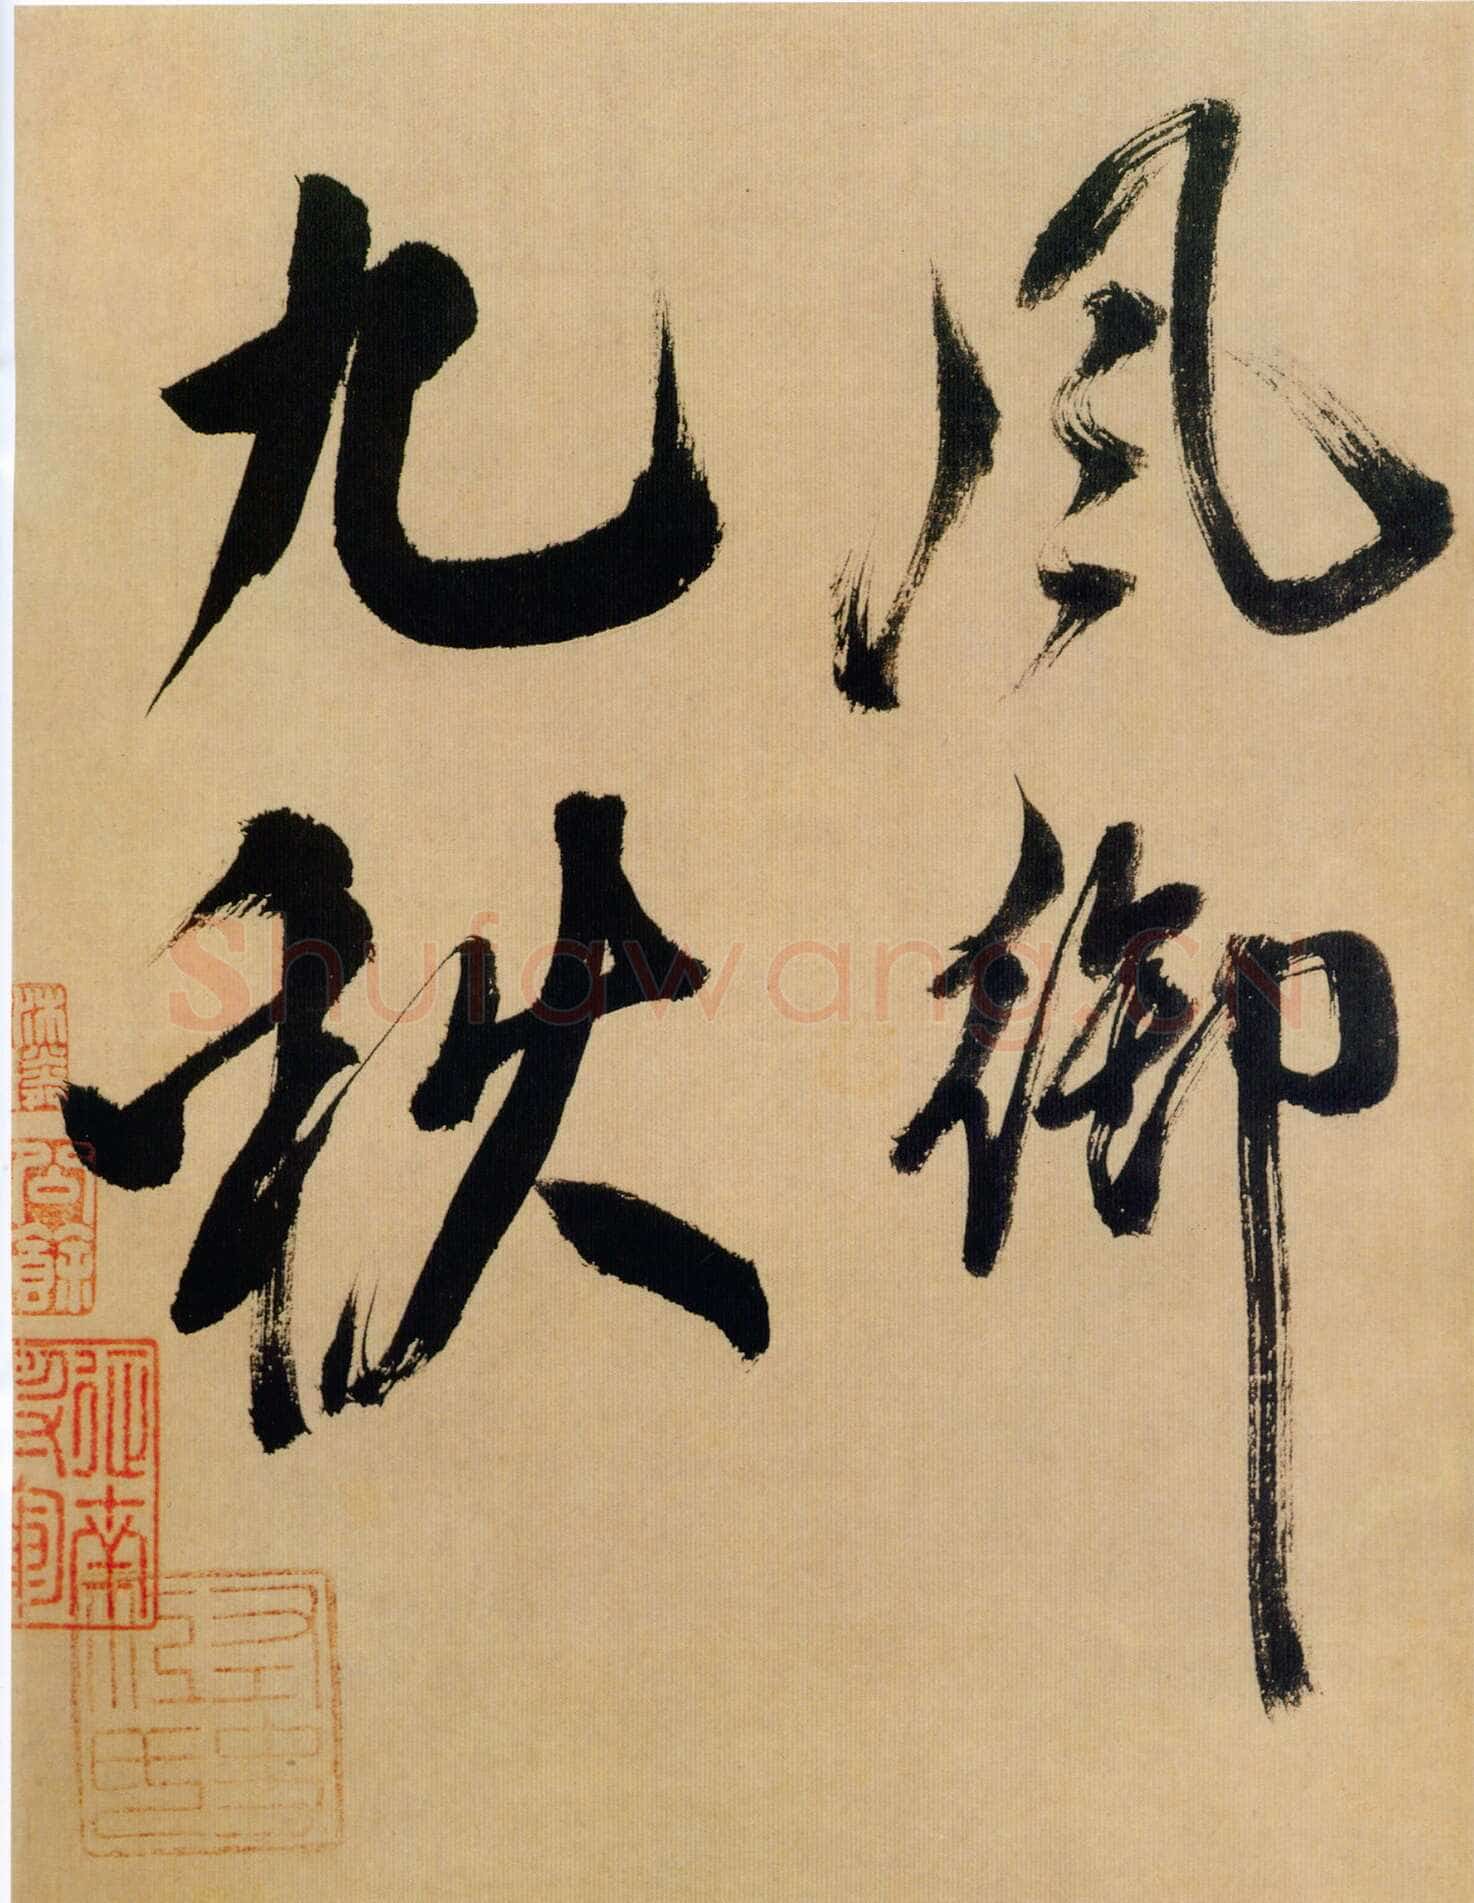 風御
九秋
Shufawang.CN